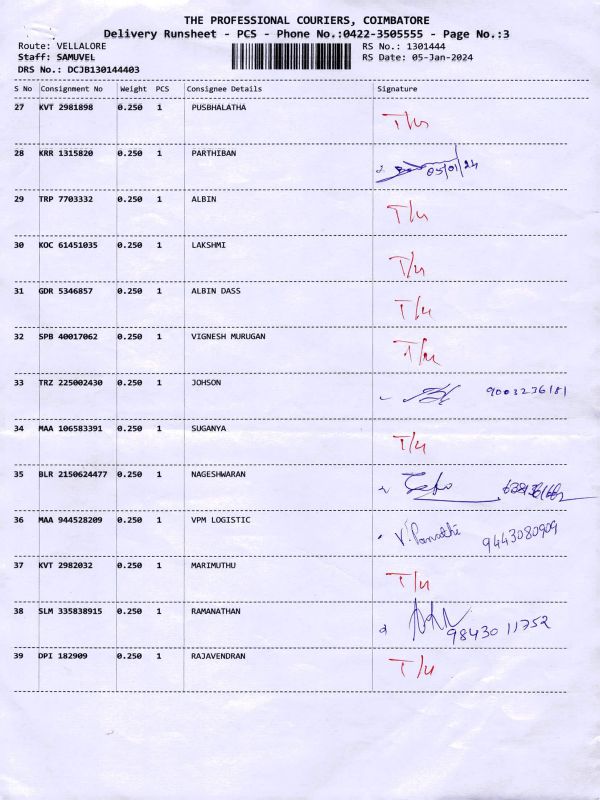 THE PROFESSIONAL COURIERS, COIMBATORE
Delivery Runsheet - PCS - Phone No.:0422-3505555 - Page No.:3
Route: VELLALORE RS No.: 1301444
Staff: SAMUVEL RS Date: 05-Jan-2024
DRS No.: DCJB130144403
S No Consignment No Weight PCS Consignee Details Signature
27 KVT 2981898 0.250 1 PUSBHALATHA T/u
28 KRR 1315820 0.250 1 PARTHIBAN 05/01/24
29 TRP 7703332 0.250 1 ALBIN T/u
30 KOC 61451035 0.250 1 LAKSHMI T/u
31 GDR 5346857 0.250 1 ALBIN DASS T/u
32 SPB 40017062 0.250 1 VIGNESH MURUGAN T/u
33 TRZ 225002430 0.250 1 JOHSON 9003236181
34 MAA 106583391 0.250 1 SUGANYA T/u
35 BLR 2150624477 0.250 1 NAGESHWARAN
36 MAA 944528209 0.250 1 VPM LOGISTIC 9443080909
37 KVT 2982032 0.250 1 MARIMUTHU T/u
38 SLM 335838915 0.250 1 RAMANATHAN 98430 11752
39 DPI 182909 0.250 1 RAJAVENDRAN T/u